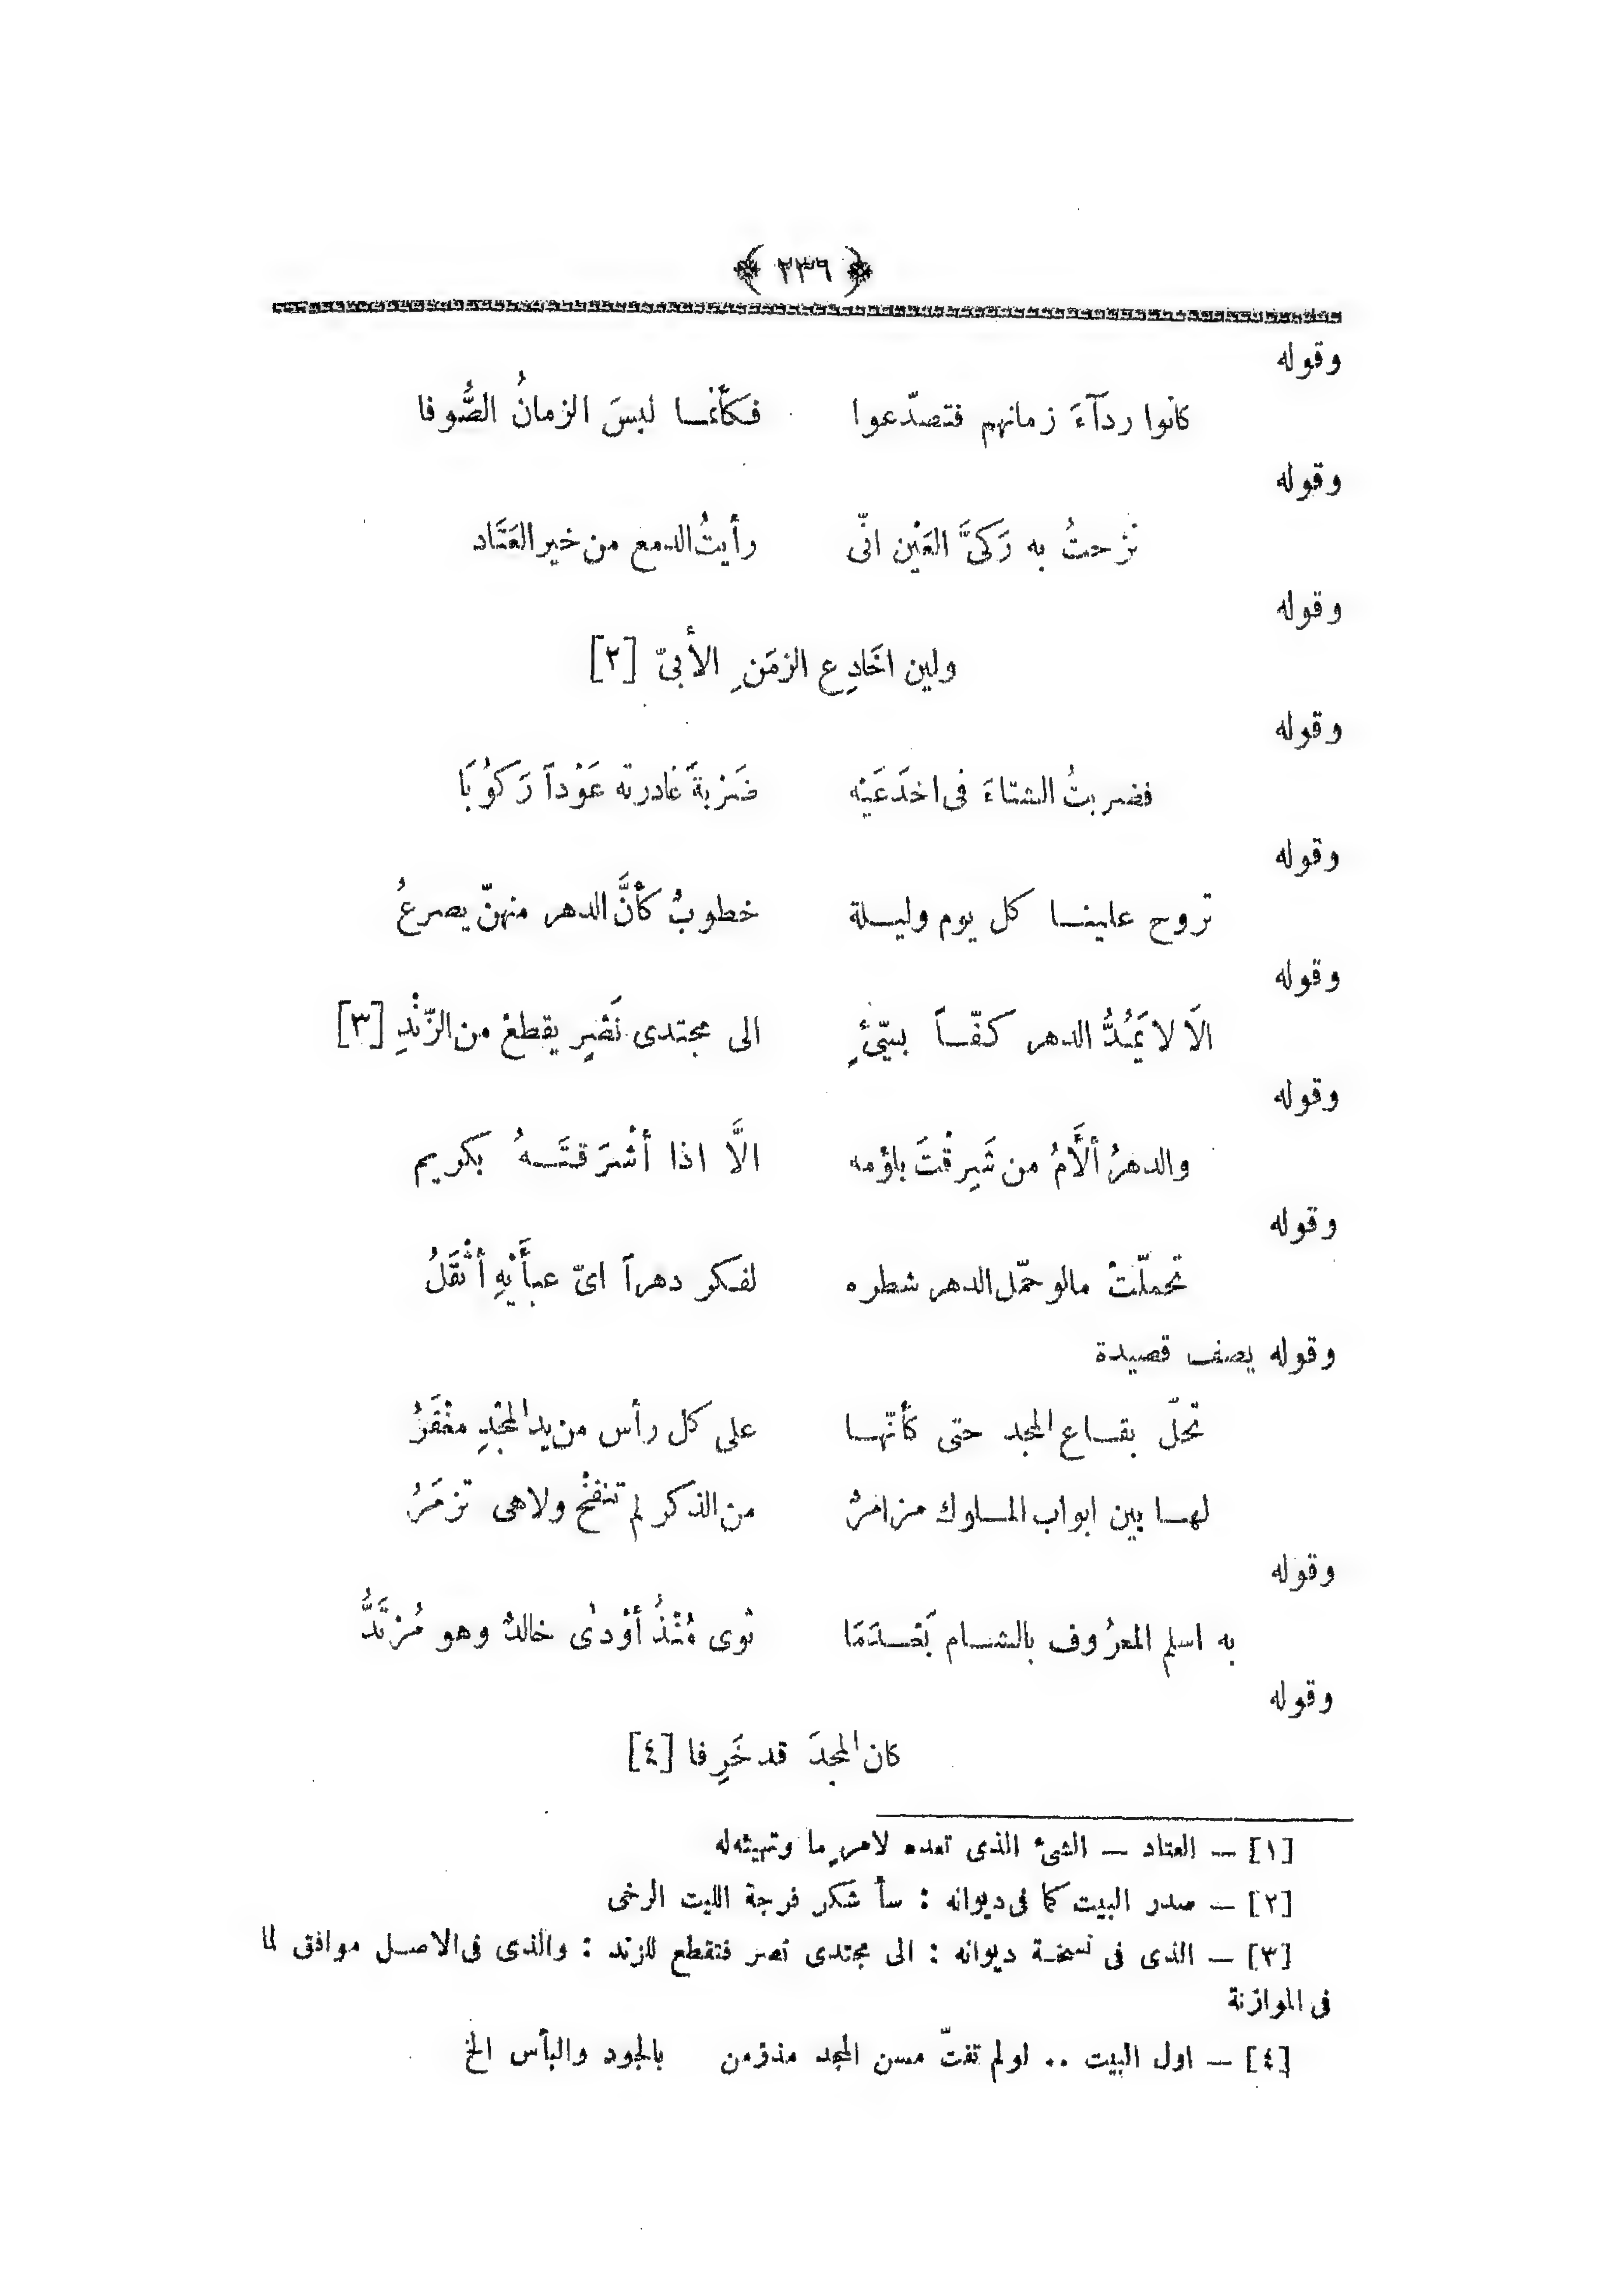 ﴿ ٢٣٦ ﴾
وقوله
كانوا ردآءَ زمانهم فتصدّعوا فكأنما لبسَ الزمانُ الصُّوفا
وقوله
نزحتُ به رَكىَّ العَيْن انّى رأيتُ الدمع من خير العَتَاد
وقوله
ولين اخَادِع الزمَنِ الأبىّ [٢]
وقوله
فضربتُ الشتاءَ فى اخدَعَيْه ضَرْبةً غادرته عَوْداً رَكوُبَا
وقوله
تروح علينا كل يوم وليلة خطوبٌ كأنَّ الدهر منهنّ يصرعُ
وقوله
الَا لا يَمُدُّ الدهر كفّاً بسيّئٍ الى مجتدى نَصْرٍ يقطعْ من الزّنْدِ [٣]
وقوله
والدهرُ ألَّامُ من شَرِقْتَ بلؤمه الَّا اذا أشْرَقتَهُ بكريم
وقوله
تحملّتْ مالو حمّل الدهر شطره لفكر دهراً اىّ عبأَيْهِ أثْقَلُ
وقوله يصف قصيدة
تحلّ بقاع المجد حتى كأنّها على كل رأس من يد المجْدِ مغْفَرُ
لها بين ابواب الملوك مزامرٌ من الذكر لم تنفخْ ولاهى تزمَرُ
وقوله
به اسلم المعرُوف بالشام بَعْدَمَا ثوى مُنْذُ أوْدىٰ خالدٌ وهو مُرْتَدُّ
وقوله
كان المجدَ قد خَرِفا [٤]
[١] — العتاد — الشئ الذى تعده لامرٍ ما وتهيئه له
[٢] — صدر البيت كما فى ديوانه : سأ شكر فرجة الليت الرخى
[٣] — الذى فى نسخة ديوانه : الى مجتدى نصر فتقطع للزند : والذى فى الاصل موافق لما
فى الموازنة
[٤] — اول البيت .. لو لم تفتّ مسن المجد مذ زمن بالجود والبأس الخ